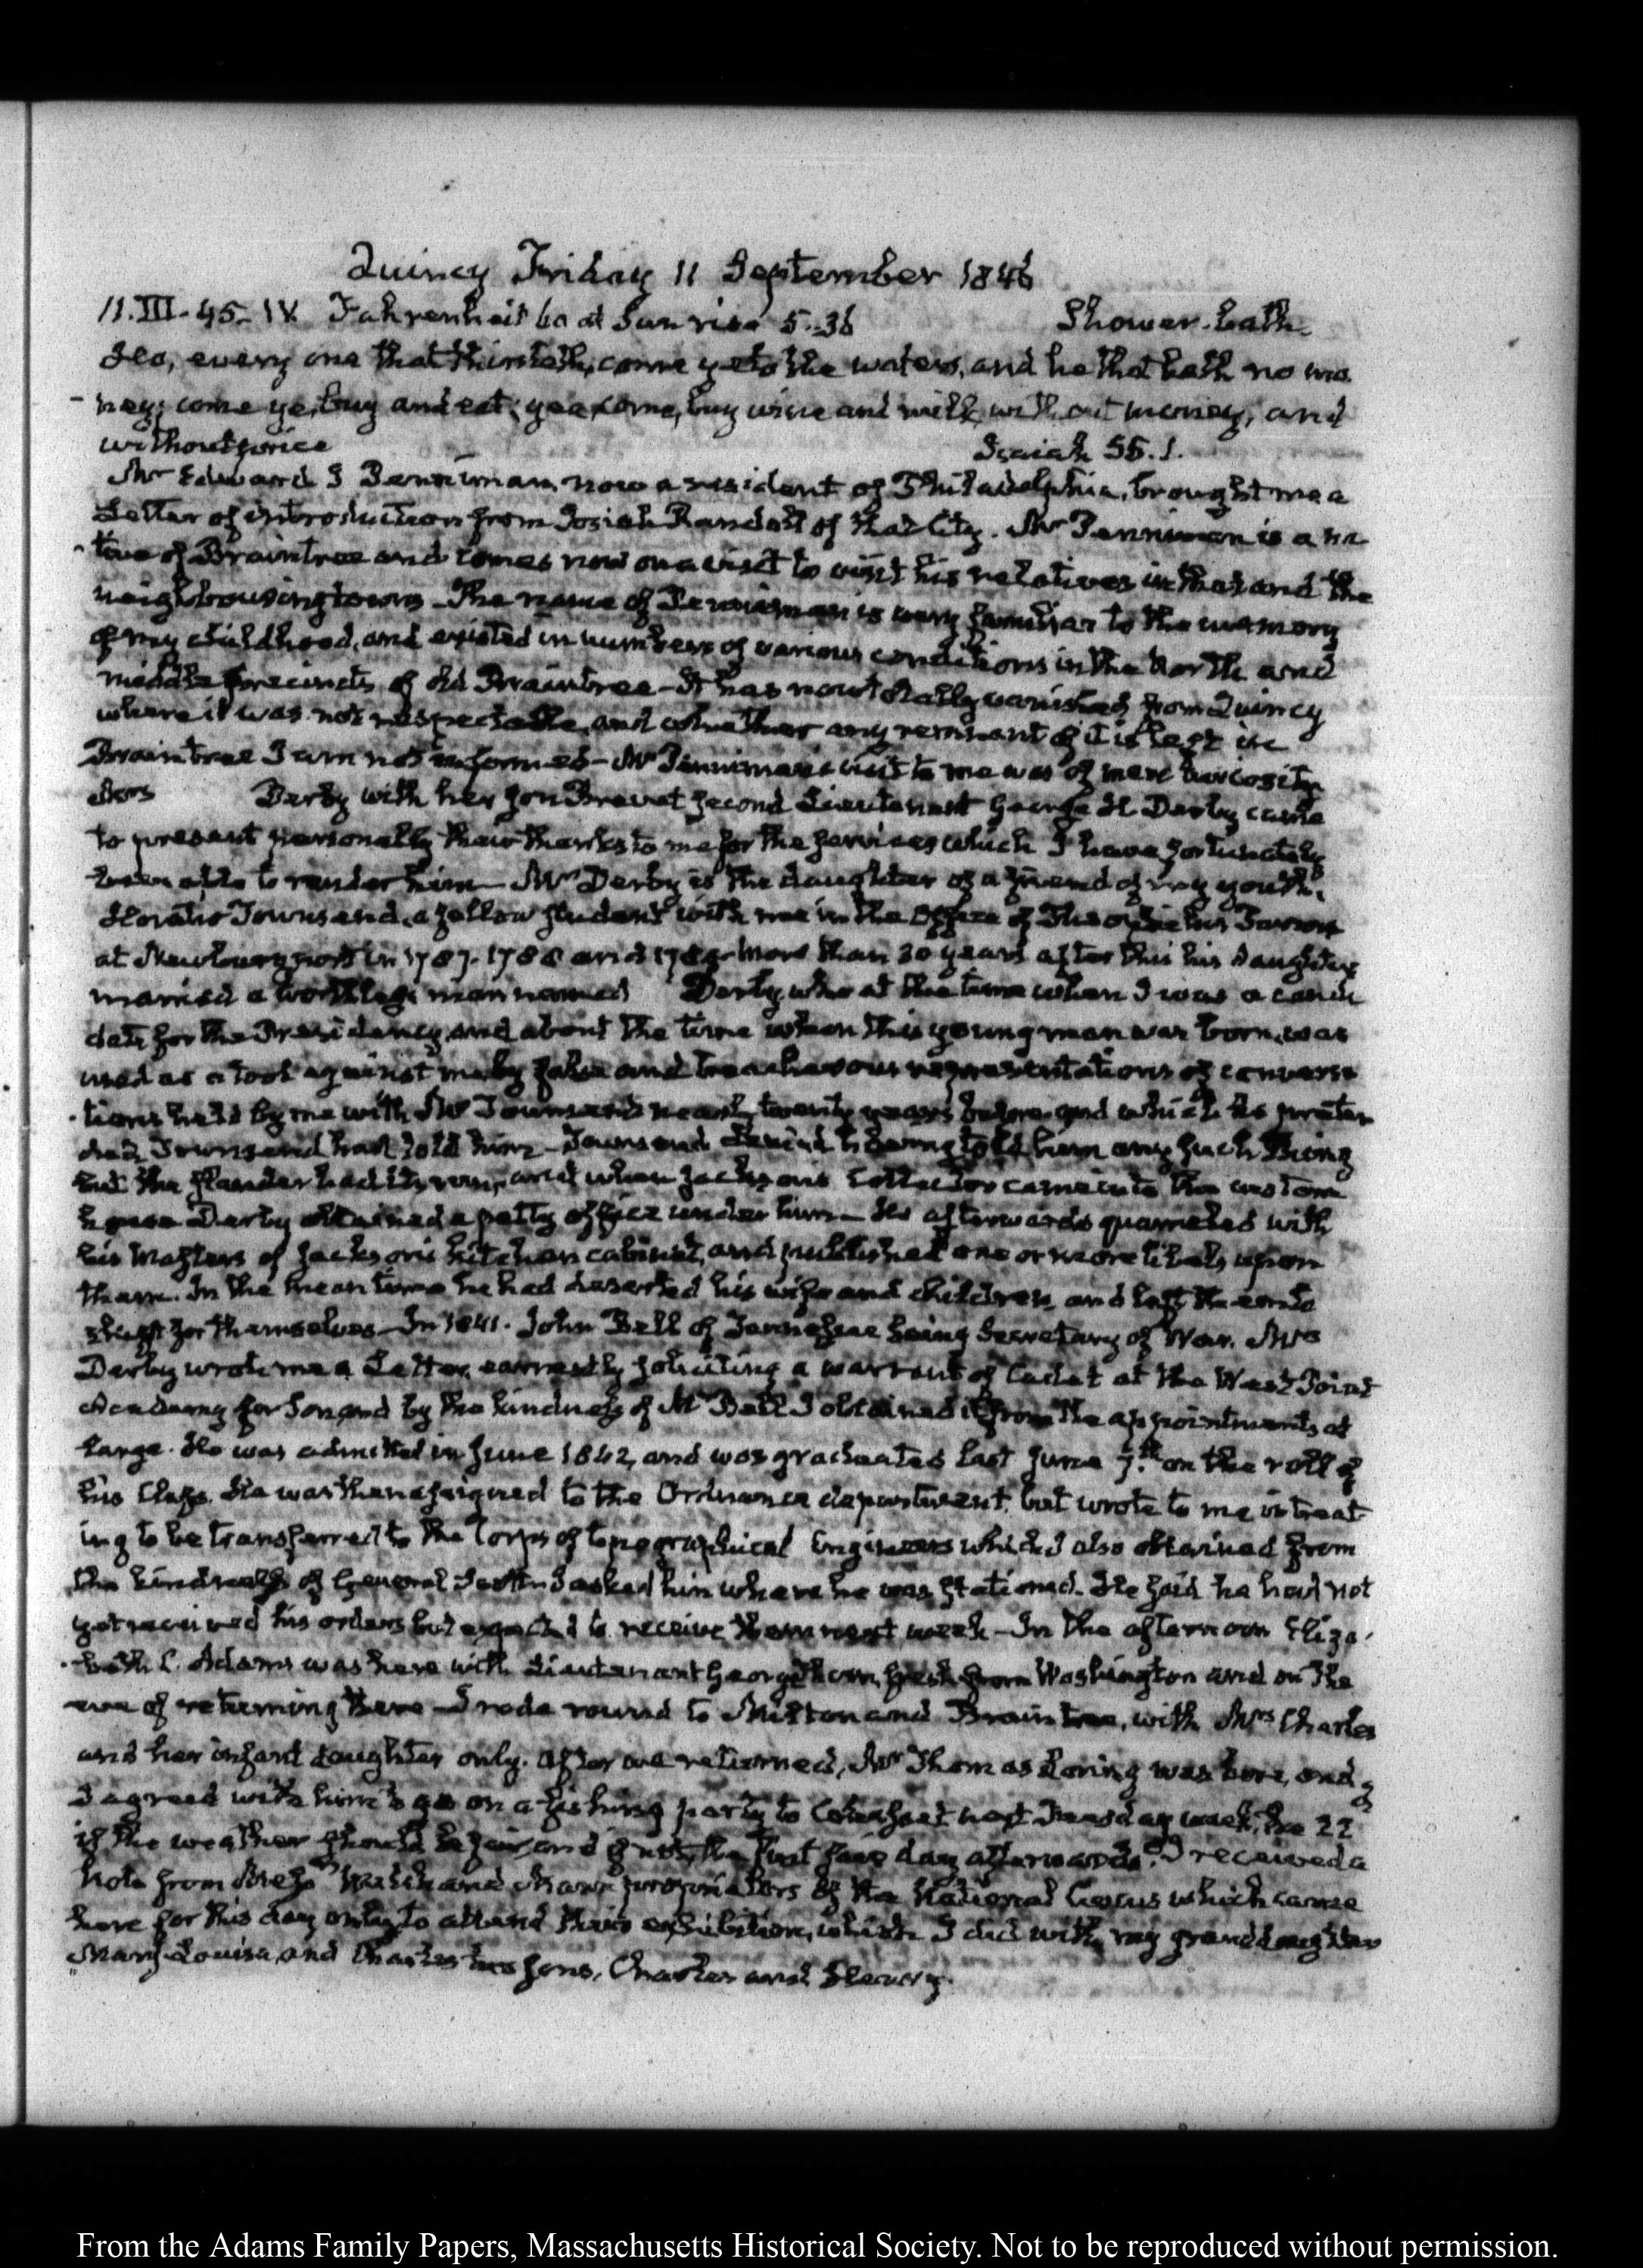 Quincy Friday 11 September 1846
11. III-45-IV. Fahrenheit 60 at Sun rise 5-36 Shower-bath.
Ho, every one that thirsteth, come ye to the waters, and he that hath no mo
-ney; come ye, buy and eat; yea come, buy wine and milk without money, and
without price Isaiah 55.1.
Mr Edward J Penniman, now a resident of Philadelphia, brought me a
Letter of introduction from Josiah Randall of that City. Mr Penniman is a na
-tive of Braintree and comes now on a visit to visit his relatives in that and the
neighbouring towns. The name of Penniman is very familiar to the memory
of my childhood, and existed in numbers of various conditions in the North and
middle precincts of old Braintree - It has now totally vanished from Quincy
where it was not respectable, and whether any remnant of it is left in
Braintree I am not informed - Mr Penniman's visit to me was of mere curiosity
Mrs Derby with her Son Brevet Second Lieutenant George H Derby came
to present personally their thanks to me for the services which I have fortunately
been able to render him - Mrs Derby is the daughter of a friend of my youth,
Horatio Townsend, a fellow student with me in the Office of Theophilus Parsons
at Newburyport in 1787. 1788 and 1789. More than 30 years after this his daughter
married a worthless man named Derby, who at the time when I was a candi
date for the Presidency, and about the time when this young man was born, was
used as a tool against me by false and treacherous representations of conversa
-tions held by me with Mr Townsend nearly twenty years before, and which he preten
ded, Townsend had told him - Townsend denied having told him any such thing
but the slander had its run, and when Jackson's Collector came into the custom
house Derby obtained a petty office under him - He afterwards quarreled with
his Masters of Jackson's kitchen cabinet, and published one or more libels upon
them. In the mean time he had deserted his wife and children and left them to
shift for themselves - In 1841. John Bell of Tennessee being Secretary of War. Mrs
Derby wrote me a Letter, earnestly soliciting a warrant of Cadet at the West Point
Academy for Son, and by the kindness of Mr Bell I obtained it from the appointments at
large. He was admitted in June 1842, and was graduated last June 7th on the roll of
his Class. He was then assigned to the Ordnance department, but wrote to me intreat
ing to be transferred to the Corps of topographical Engineers which I also obtained from
the kindness of General Scott - I asked him where he was stationed. He said he had not
yet received his orders but expected to receive them next week - In the afternoon Eliza
-beth C. Adams was here with Lieutenant George fresh from Washington and on the
eve of returning there - I rode round to Milton and Braintree, with Mrs Charles
and her infant daughter only. After we returned, Mr Thomas Loring was here, and
I agreed with him to go on a fishing party to Cohasset next Tuesday week, the 22d
if the weather should be fair and if not, the first fair day afterwards. I received a
Note from Mess and Mann proprietors of the National Circus which came
here for this day only, to attend their exhibition, which I did with my granddaughter
Mary-Louisa, and Charles's two sons, Charles and Henry.
From the Adams Family Papers, Massachusetts Historical Society. Not to be reproduced without permission.